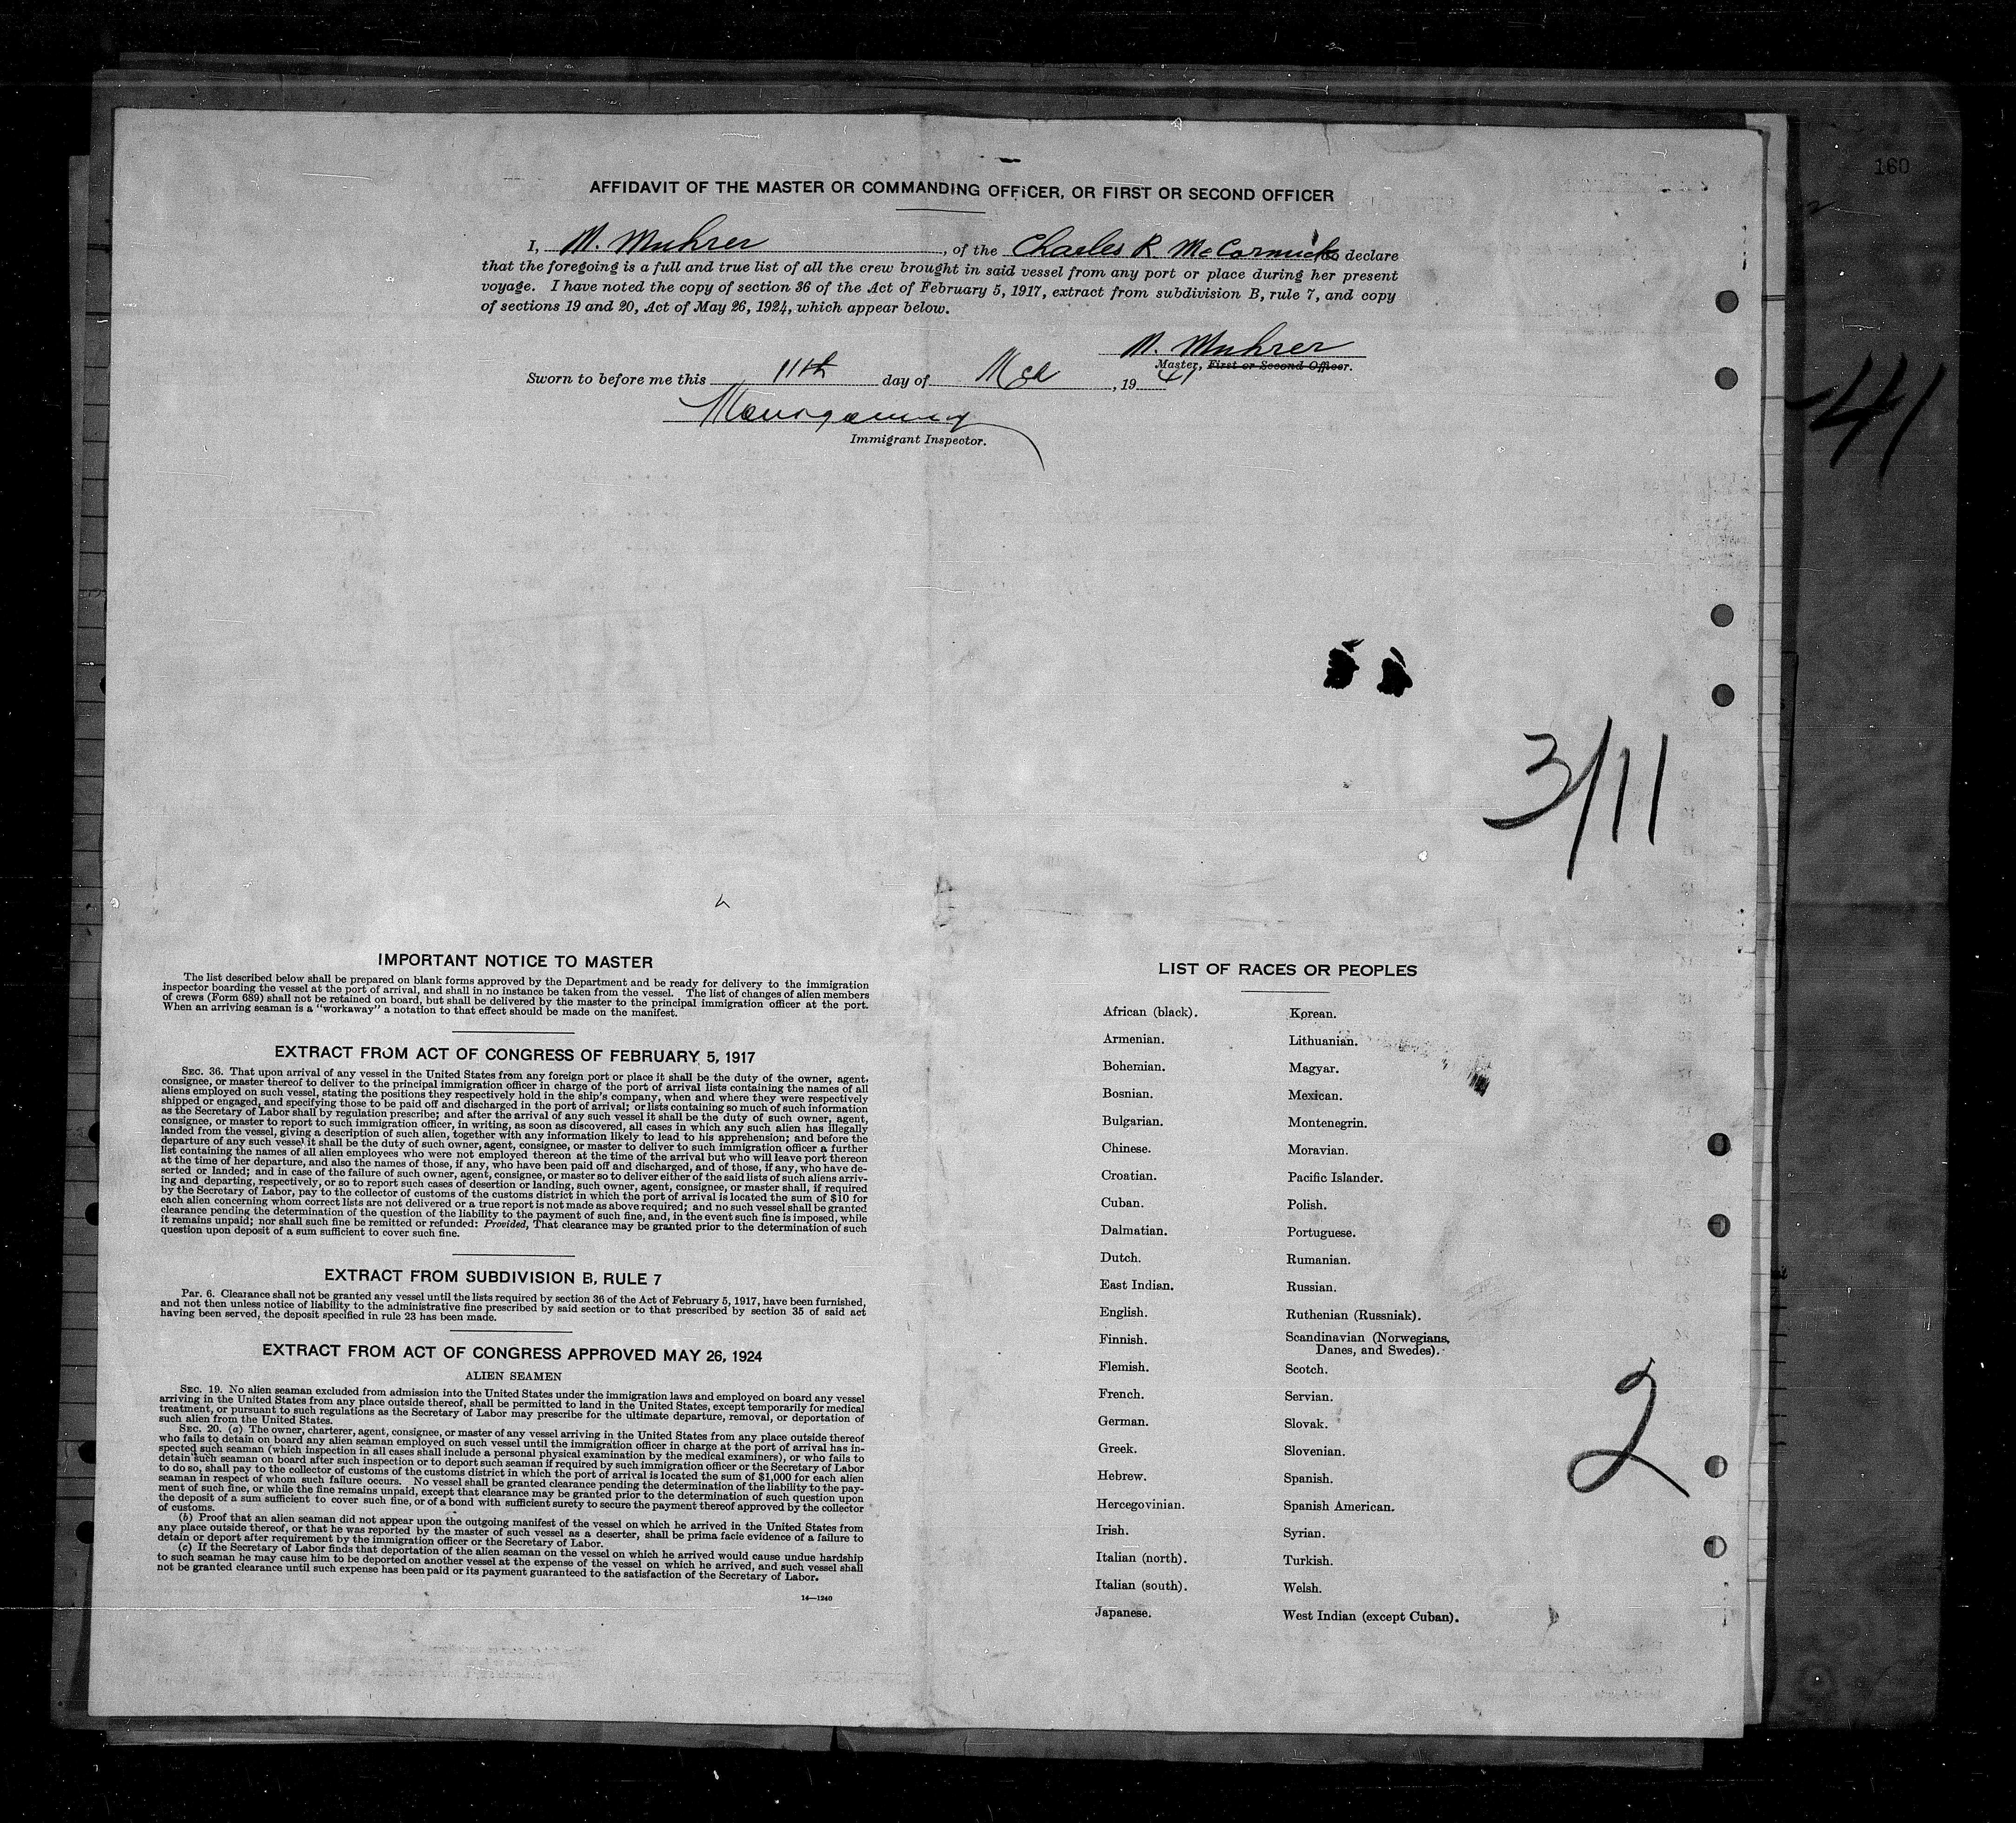 160
AFFIDAVIT OF THE MASTER OR COMMANDING OFFICER, OR FIRST OR SECOND OFFICER
I, M. Muhrer, of the Charles R McCormick, declare
that the foregoing is a full and true list of all the crew brought in said vessel from any port or place during her present
voyage. I have noted the copy of section 36 of the Act of February 5, 1917, extract from subdivision B, rule 7, and copy
of sections 19 and 20, Act of May 26, 1924, which appear below.
M. Muhrer
Master, First or Second Officer.
Sworn to before me this 11th day of Mch, 1941
Immigrant Inspector.
41
3/11
IMPORTANT NOTICE TO MASTER
The list described below shall be prepared on blank forms approved by the Department and be ready for delivery to the immigration
inspector boarding the vessel at the port of arrival, and shall in no instance be taken from the vessel. The list of changes of alien members
of crews (Form 689) shall not be retained on board, but shall be delivered by the master to the principal immigration officer at the port.
When an arriving seaman is a "workaway" a notation to that effect should be made on the manifest.
EXTRACT FROM ACT OF CONGRESS OF FEBRUARY 5, 1917
SEC. 36. That upon arrival of any vessel in the United States from any foreign port or place it shall be the duty of the owner, agent,
consignee, or master thereof to deliver to the principal immigration officer in charge of the port of arrival lists containing the names of all
aliens employed on such vessel, stating the positions they respectively hold in the ship's company, when and where they were respectively
shipped or engaged, and specifying those to be paid off and discharged in the port of arrival; or lists containing so much of such information
as the Secretary of Labor shall by regulation prescribe; and after the arrival of any such vessel it shall be the duty of such owner, agent,
consignee, or master to report to such immigration officer, in writing, as soon as discovered, all cases in which any such alien has illegally
landed from the vessel, giving a description of such alien, together with any information likely to lead to his apprehension; and before the
departure of any such vessel it shall be the duty of such owner, agent, consignee, or master to deliver to such immigration officer a further
list containing the names of all alien employees who were not employed thereon at the time of the arrival but who will leave port thereon
at the time of her departure, and also the names of those, if any, who have been paid off and discharged, and of those, if any, who have de-
serted or landed; and in case of the failure of such owner, agent, consignee, or master so to deliver either of the said lists of such aliens arriv-
ing and departing, respectively, or so to report such cases of desertion or landing, such owner, agent, consignee, or master shall, if required
by the Secretary of Labor, pay to the collector of customs of the customs district in which the port of arrival is located the sum of $10 for
each alien concerning whom correct lists are not delivered or a true report is not made as above required; and no such vessel shall be granted
clearance pending the determination of the question of the liability to the payment of such fine, and, in the event such fine is imposed, while
it remains unpaid; nor shall such fine be remitted or refunded: Provided, That clearance may be granted prior to the determination of such
question upon deposit of a sum sufficient to cover such fine.
EXTRACT FROM SUBDIVISION B, RULE 7
PAR. 6. Clearance shall not be granted any vessel until the lists required by section 36 of the Act of February 5, 1917, have been furnished,
and not then unless notice of liability to the administrative fine prescribed by said section or to that prescribed by section 35 of said act
having been served, the deposit specified in rule 23 has been made.
EXTRACT FROM ACT OF CONGRESS APPROVED MAY 26, 1924
ALIEN SEAMEN
SEC. 19. No alien seaman excluded from admission into the United States under the immigration laws and employed on board any vessel
arriving in the United States from any place outside thereof, shall be permitted to land in the United States, except temporarily for medical
treatment, or pursuant to such regulations as the Secretary of Labor may prescribe for the ultimate departure, removal, or deportation of
such alien from the United States.
SEC. 20. (a) The owner, charterer, agent, consignee, or master of any vessel arriving in the United States from any place outside thereof
who fails to detain on board any alien seaman employed on such vessel until the immigration officer in charge at the port of arrival has in-
spected such seaman (which inspection in all cases shall include a personal physical examination by the medical examiners), or who fails to
detain such seaman on board after such inspection or to deport such seaman if required by such immigration officer or the Secretary of Labor
to do so, shall pay to the collector of customs of the customs district in which the port of arrival is located the sum of $1,000 for each alien
seaman in respect of whom such failure occurs. No vessel shall be granted clearance pending the determination of the liability to the pay-
ment of such fine, or while the fine remains unpaid, except that clearance may be granted prior to the determination of such question upon
the deposit of a sum sufficient to cover such fine, or of a bond with sufficient surety to secure the payment thereof approved by the collector
of customs.
(b) Proof that an alien seaman did not appear upon the outgoing manifest of the vessel on which he arrived in the United States from
any place outside thereof, or that he was reported by the master of such vessel as a deserter, shall be prima facie evidence of a failure to
detain or deport after requirement by the immigration officer or the Secretary of Labor.
(c) If the Secretary of Labor finds that deportation of the alien seaman on the vessel on which he arrived would cause undue hardship
to such seaman he may cause him to be deported on another vessel at the expense of the vessel on which he arrived, and such vessel shall
not be granted clearance until such expense has been paid or its payment guaranteed to the satisfaction of the Secretary of Labor.
14—1240
LIST OF RACES OR PEOPLES
African (black).
Armenian.
Bohemian.
Bosnian.
Bulgarian.
Chinese.
Croatian.
Cuban.
Dalmatian.
Dutch.
East Indian.
English.
Finnish.
Flemish.
French.
German.
Greek.
Hebrew.
Hercegovinian.
Irish.
Italian (north).
Italian (south).
Japanese.
Korean.
Lithuanian.
Magyar.
Mexican.
Montenegrin.
Moravian.
Pacific Islander.
Polish.
Portuguese.
Rumanian.
Russian.
Ruthenian (Russniak).
Scandinavian (Norwegians,
Danes, and Swedes).
Scotch.
Servian.
Slovak.
Slovenian.
Spanish.
Spanish American.
Syrian.
Turkish.
Welsh.
West Indian (except Cuban).
2